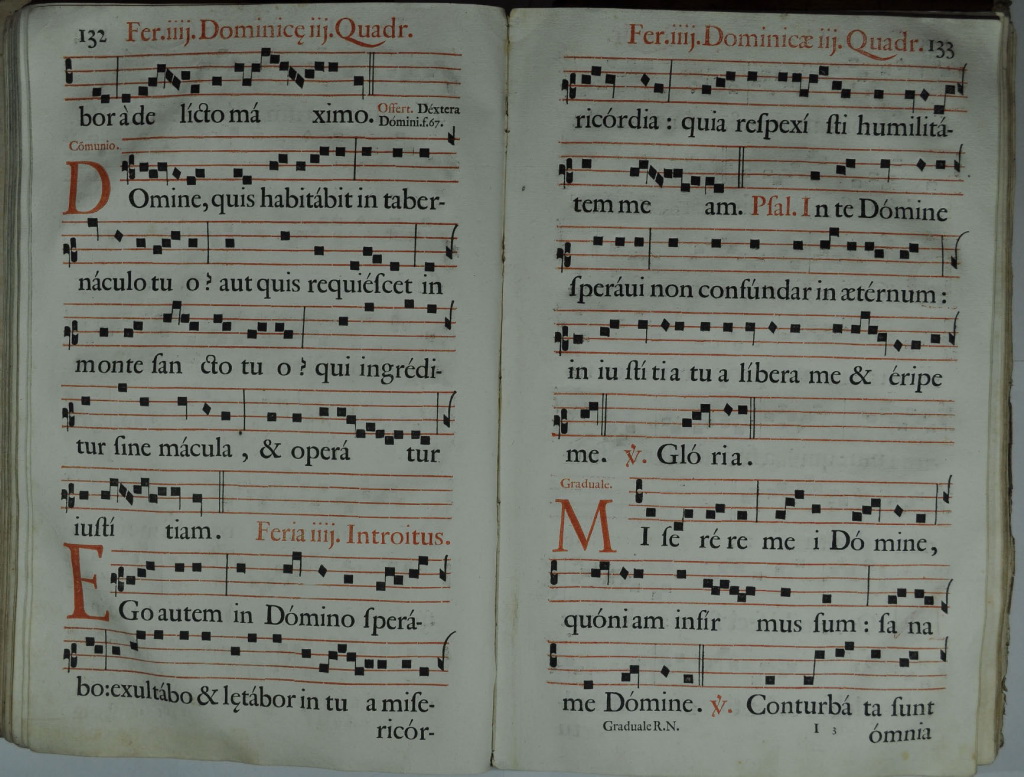 132 Fer.iiij. Dominicę iij. Quadr.
bor à de lícto má ximo. Offert. Déxtera
Dómini.f.67.
Cómunio.
DOmine, quis habitábit in taber-
náculo tu o? aut quis requiéſcet in
monte ſan cto tu o? qui ingrédi-
tur ſine mácula, & operá tur
iuſtí tiam. Feria iiij. Introitus.
EGo autem in Dómino ſperá-
bo: exultábo & lętábor in tu a miſe-
ricór-
Fer.iiij. Dominicæ iij. Quadr. 133
ricórdia: quia reſpexí ſti humilitá-
tem me am. Pſal. In te Dómine
ſperáui non confúndar in ætérnum:
in iu ſtí ti a tu a líbera me & éripe
me. ℣. Gló ri a.
Graduale.
MI ſe ré re me i Dó mine,
quóni am infir mus ſum: ſa na
me Dómine. ℣. Conturbá ta ſunt
Graduale R.N. I 3 ómnia